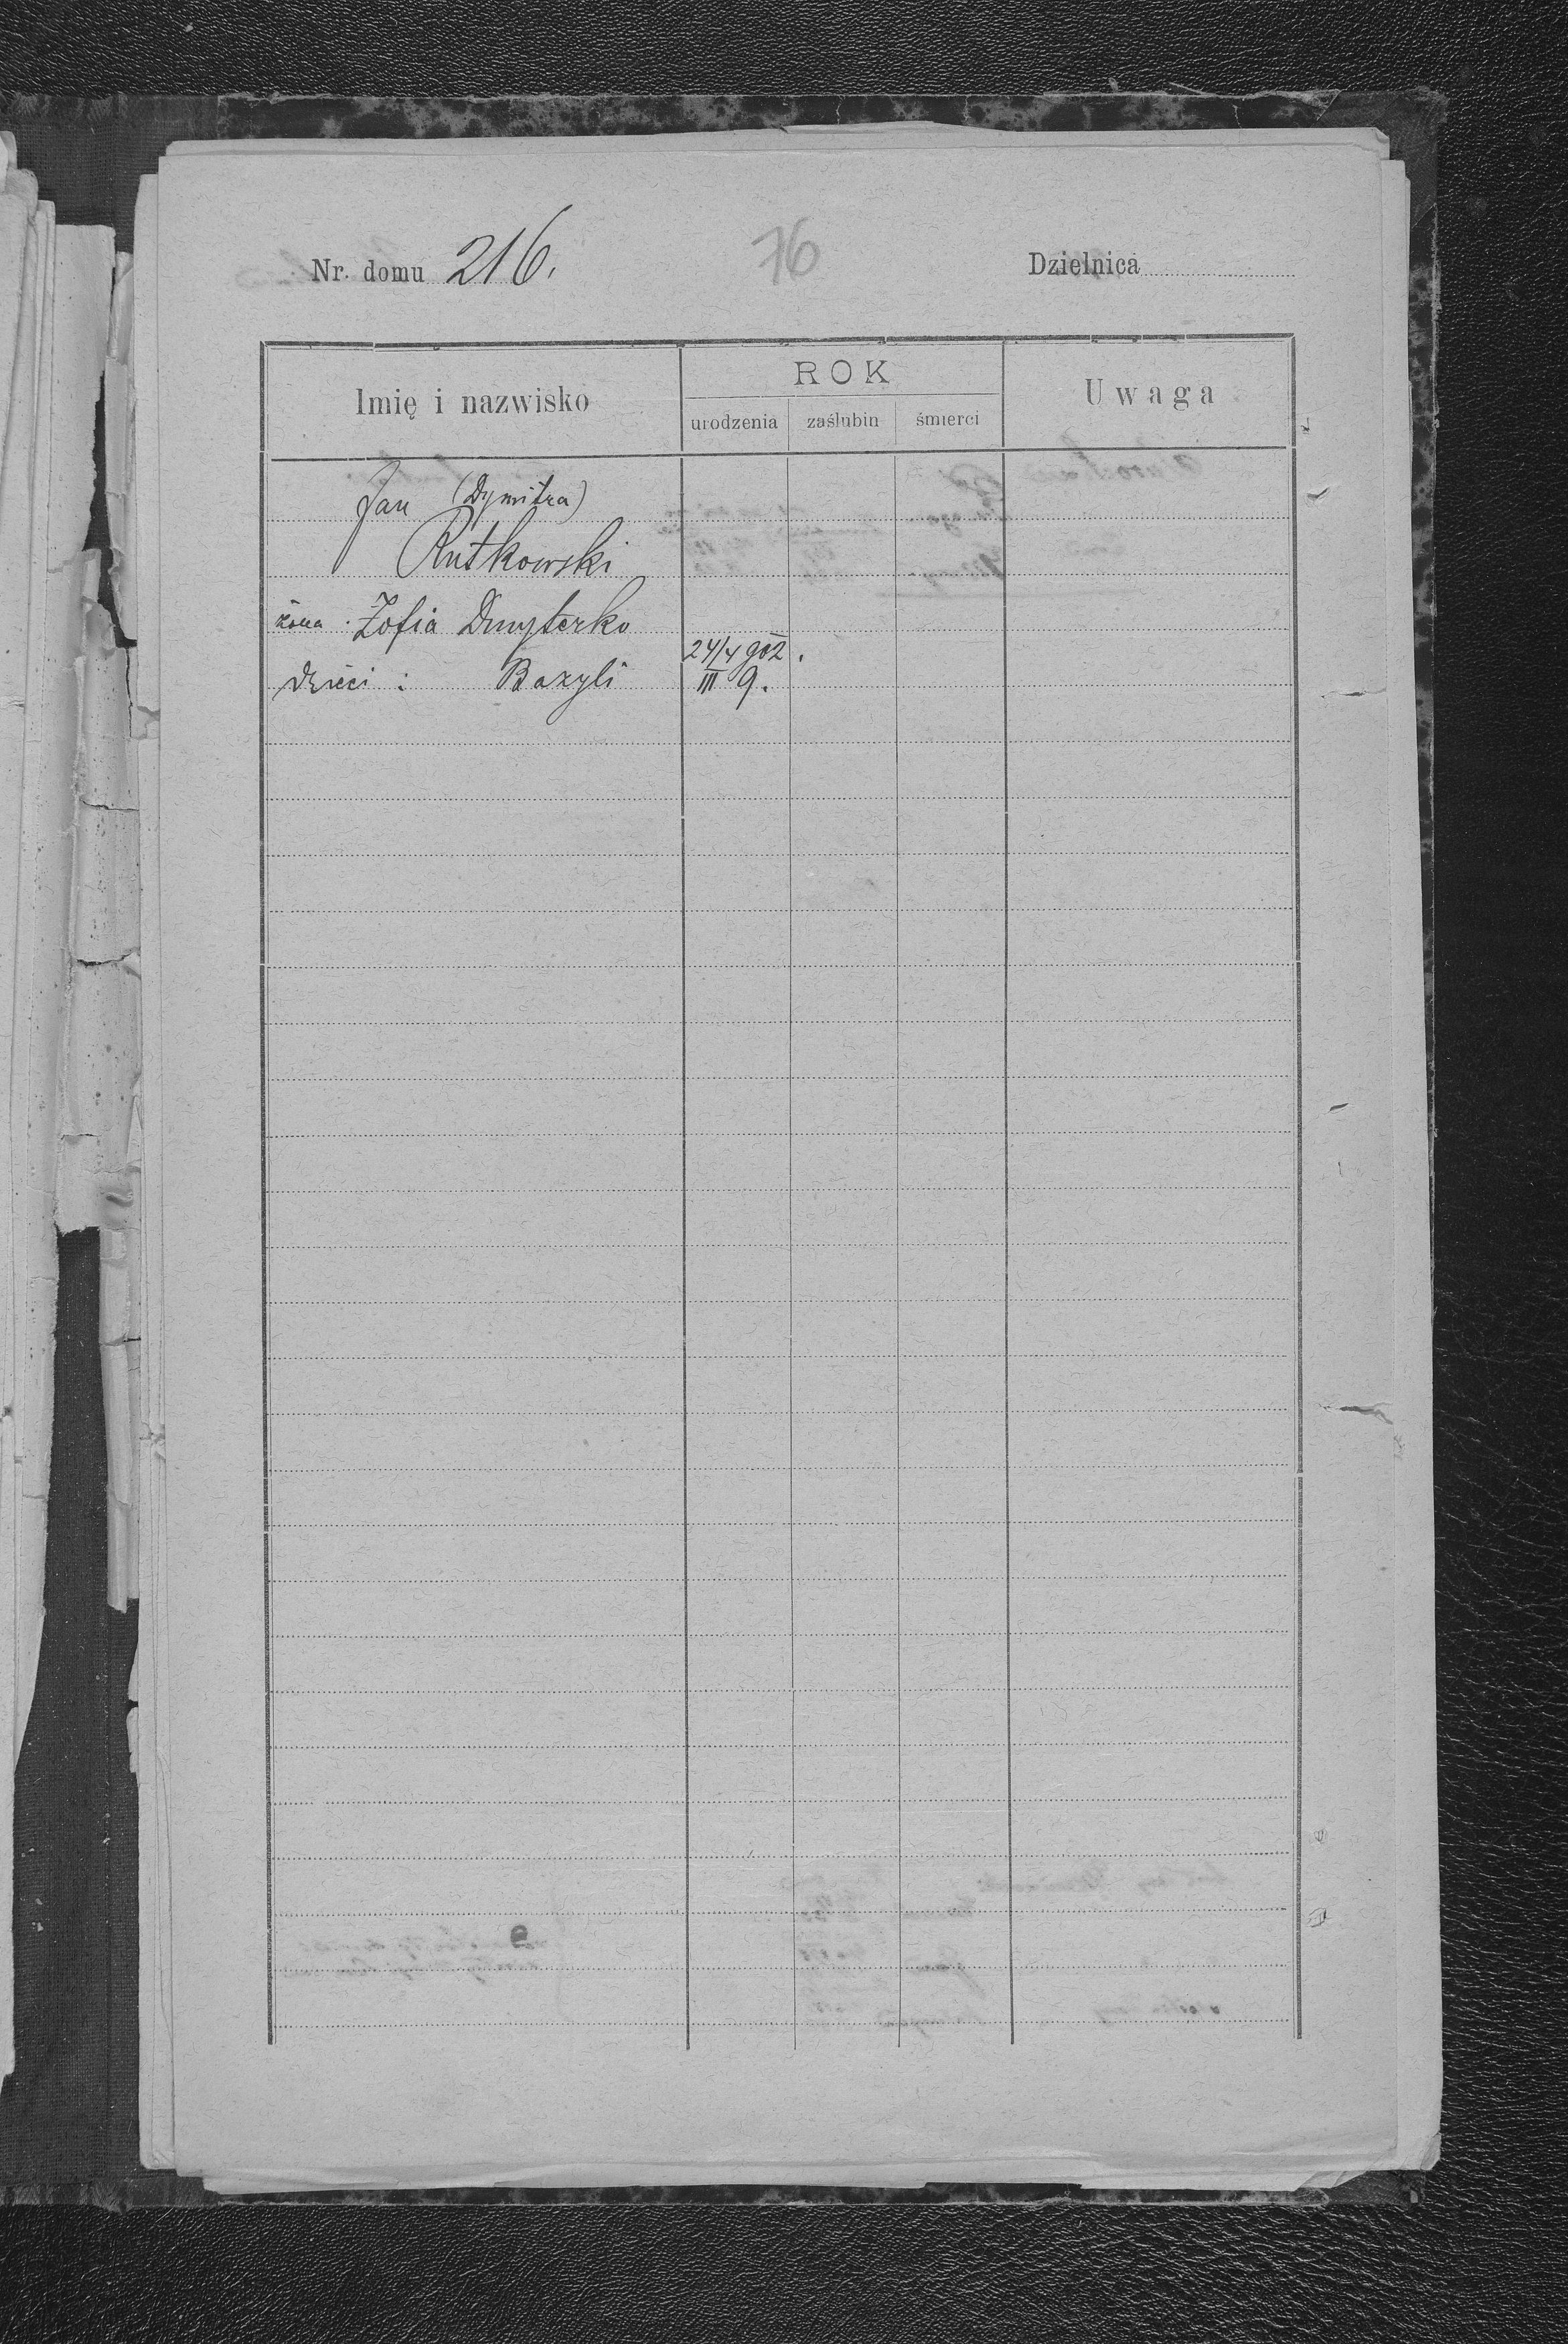 Nr. domu 216.
76
Dzielnica
Imię i nazwisko
ROK
Uwaga
urodzenia zaślubin śmierci
Jan (Dymitra)
Rutkowski
żona. Zofia Dmyterko
dzieci: Bazyli
24/4 902.
III 9.